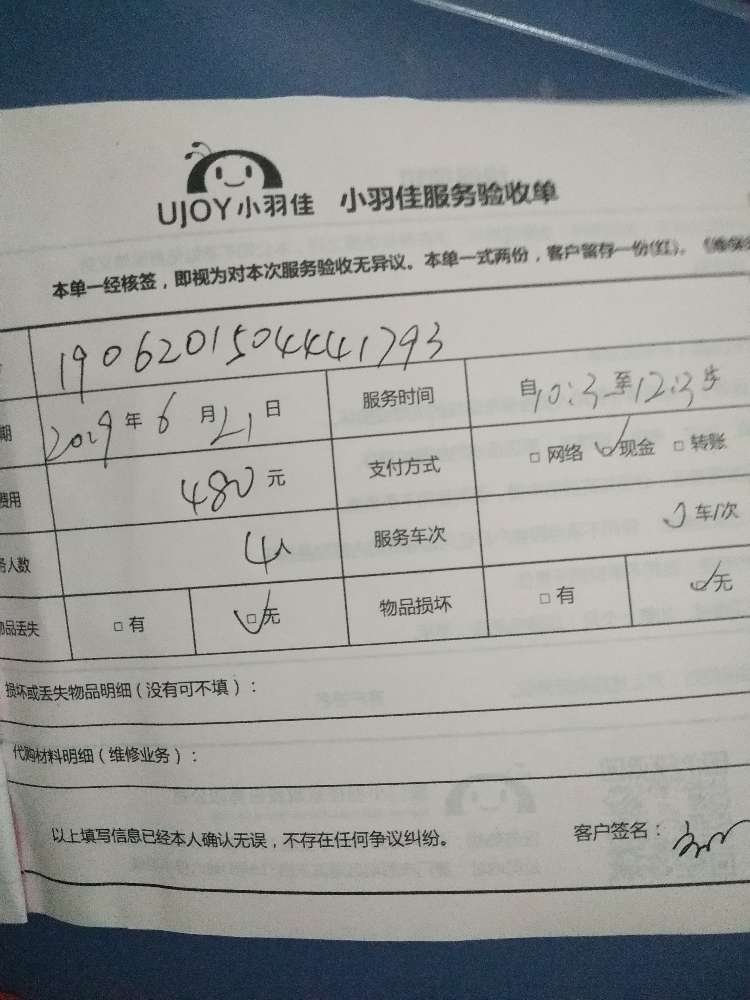 UJOY小羽佳 小羽佳服务验收单
本单一经核签，即视为对本次服务验收无异议。本单一式两份，客户留存一份(红)。
19062015044441793
期 2019年6月21日 服务时间 自10:3 至12:3
费用 480元 支付方式 □网络 ☑现金 □转账
务人数 4人 服务车次 车/次
物品丢失 □有 ☑无 物品损坏 □有 ☑无
损坏或丢失物品明细（没有可不填）：
代购材料明细（维修业务）：
以上填写信息已经本人确认无误，不存在任何争议纠纷。 客户签名：